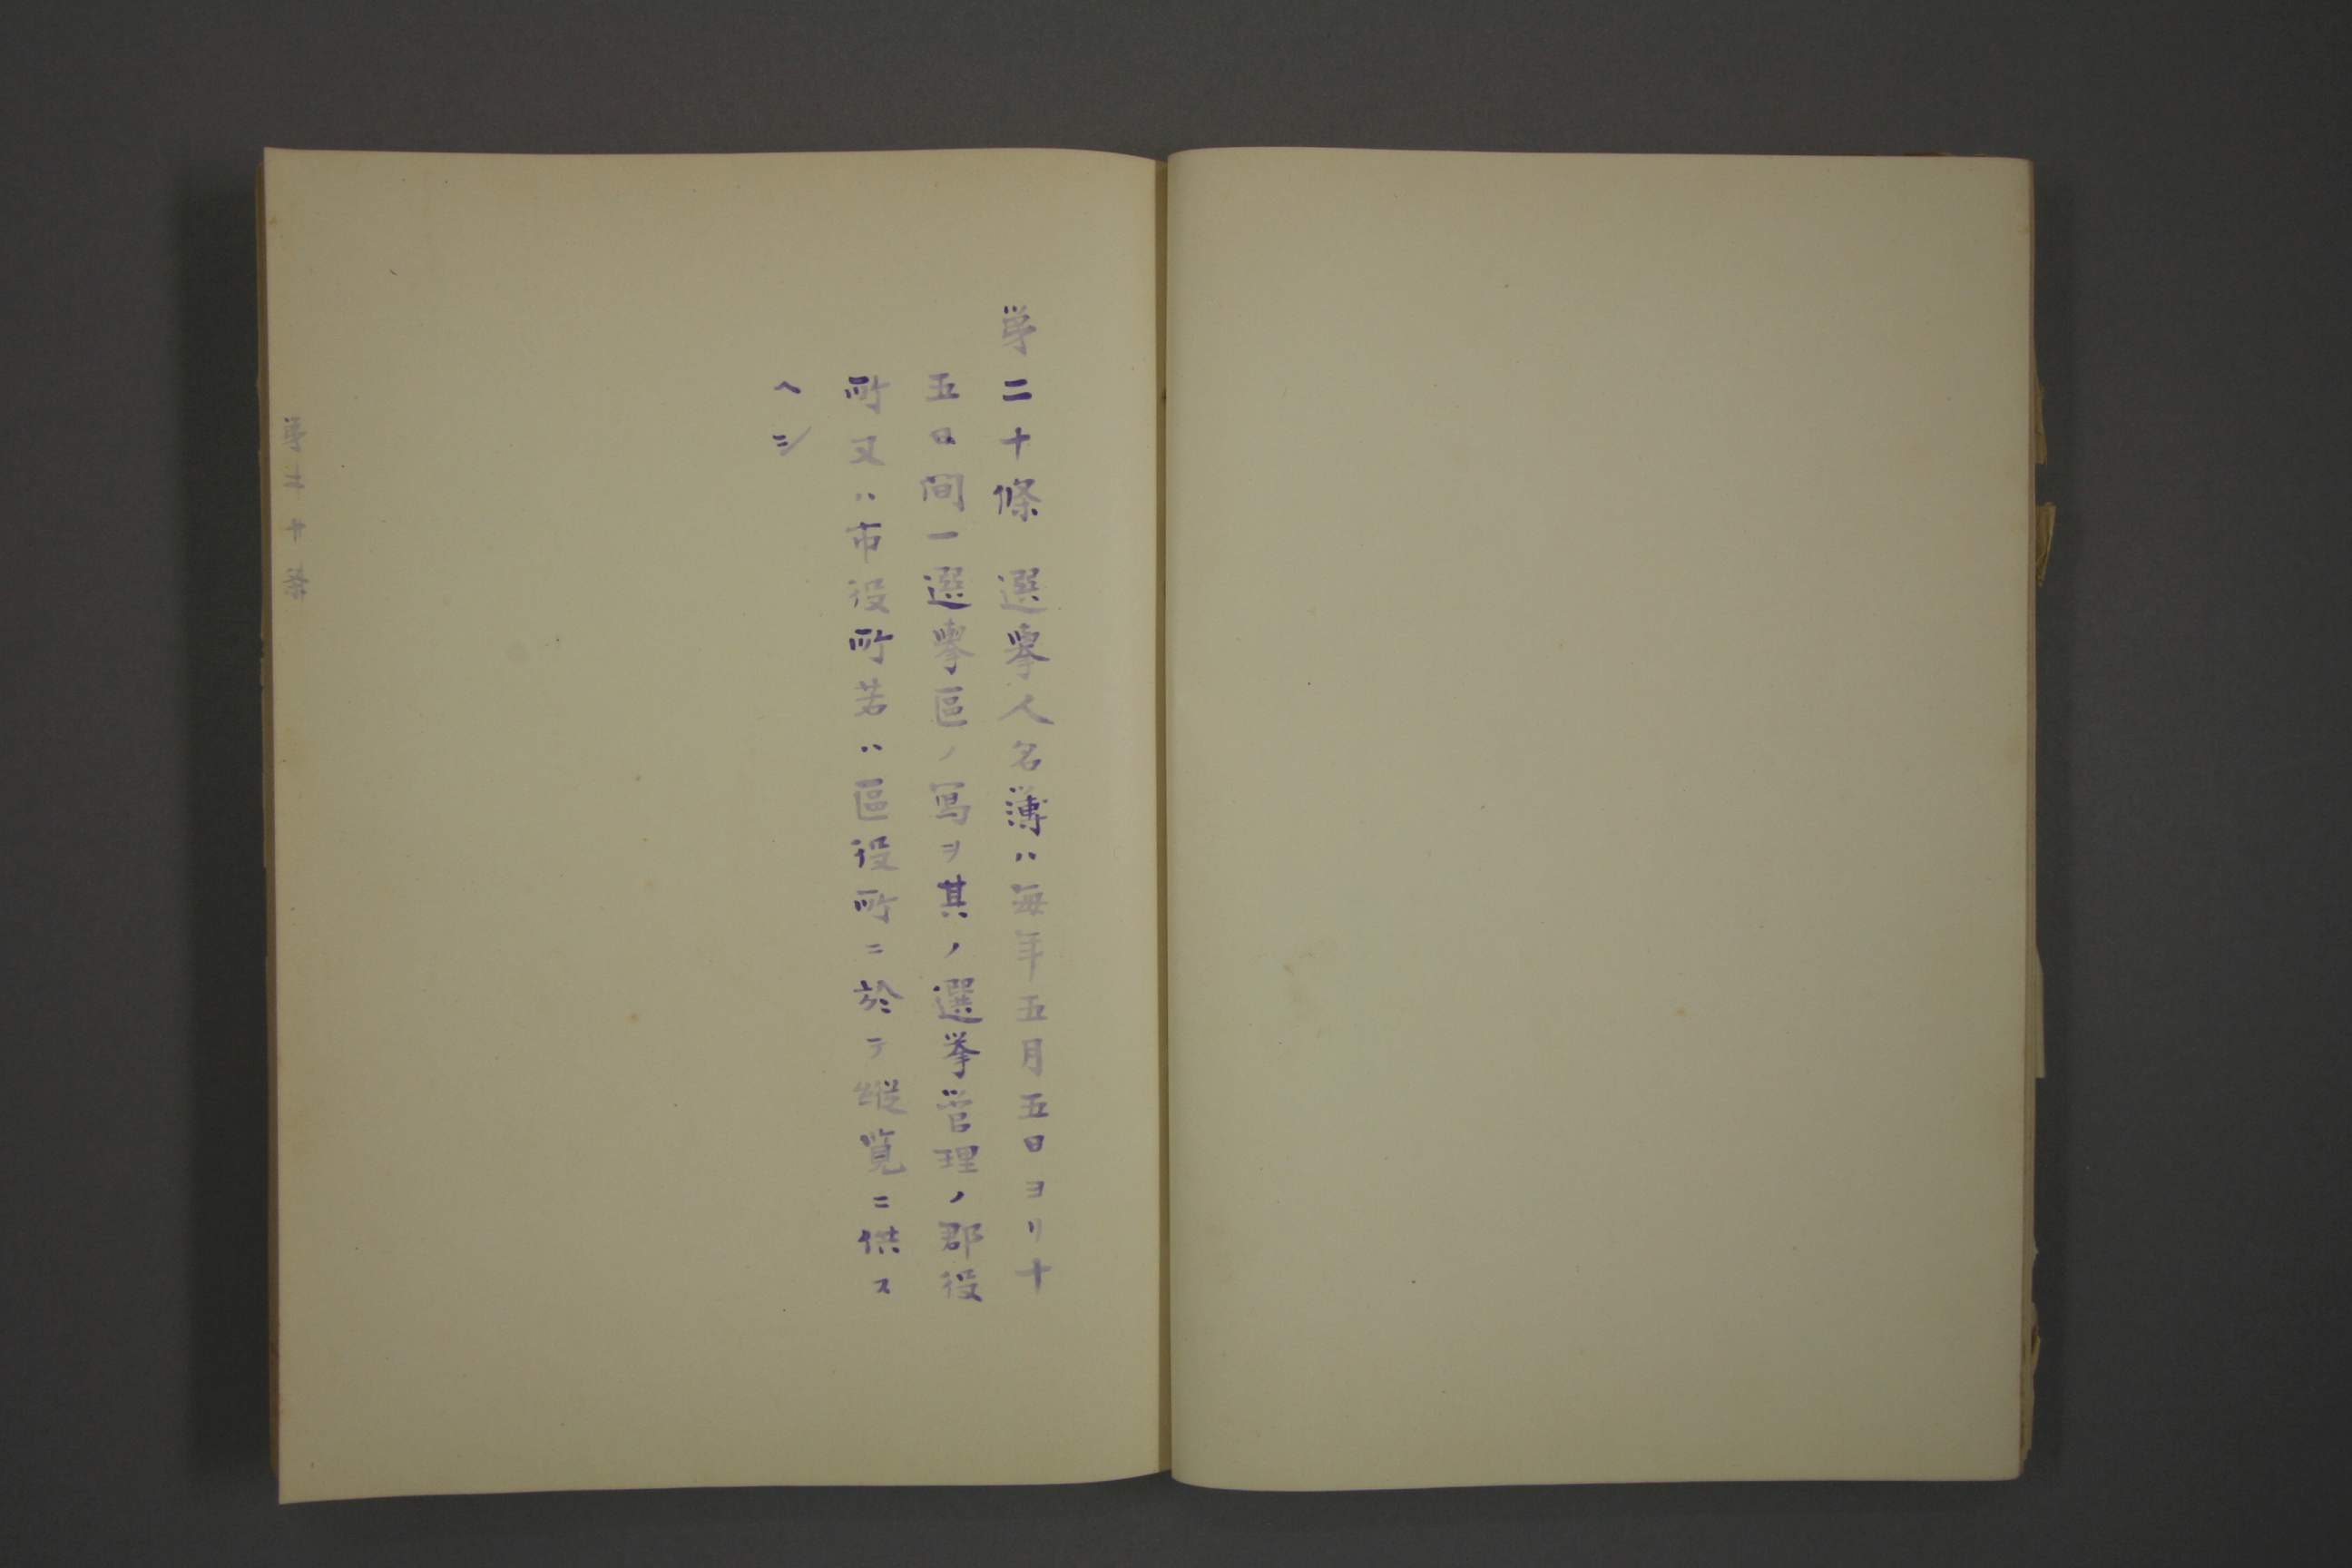 第二十條　選擧人名薄ハ毎年五月五日ヨリ十
五日間一選擧區ノ寫ヲ其ノ選挙管理ノ郡役
所又ハ市役所若ハ區役所ニ於テ縦覧ニ供ス
ヘシ
第二十条